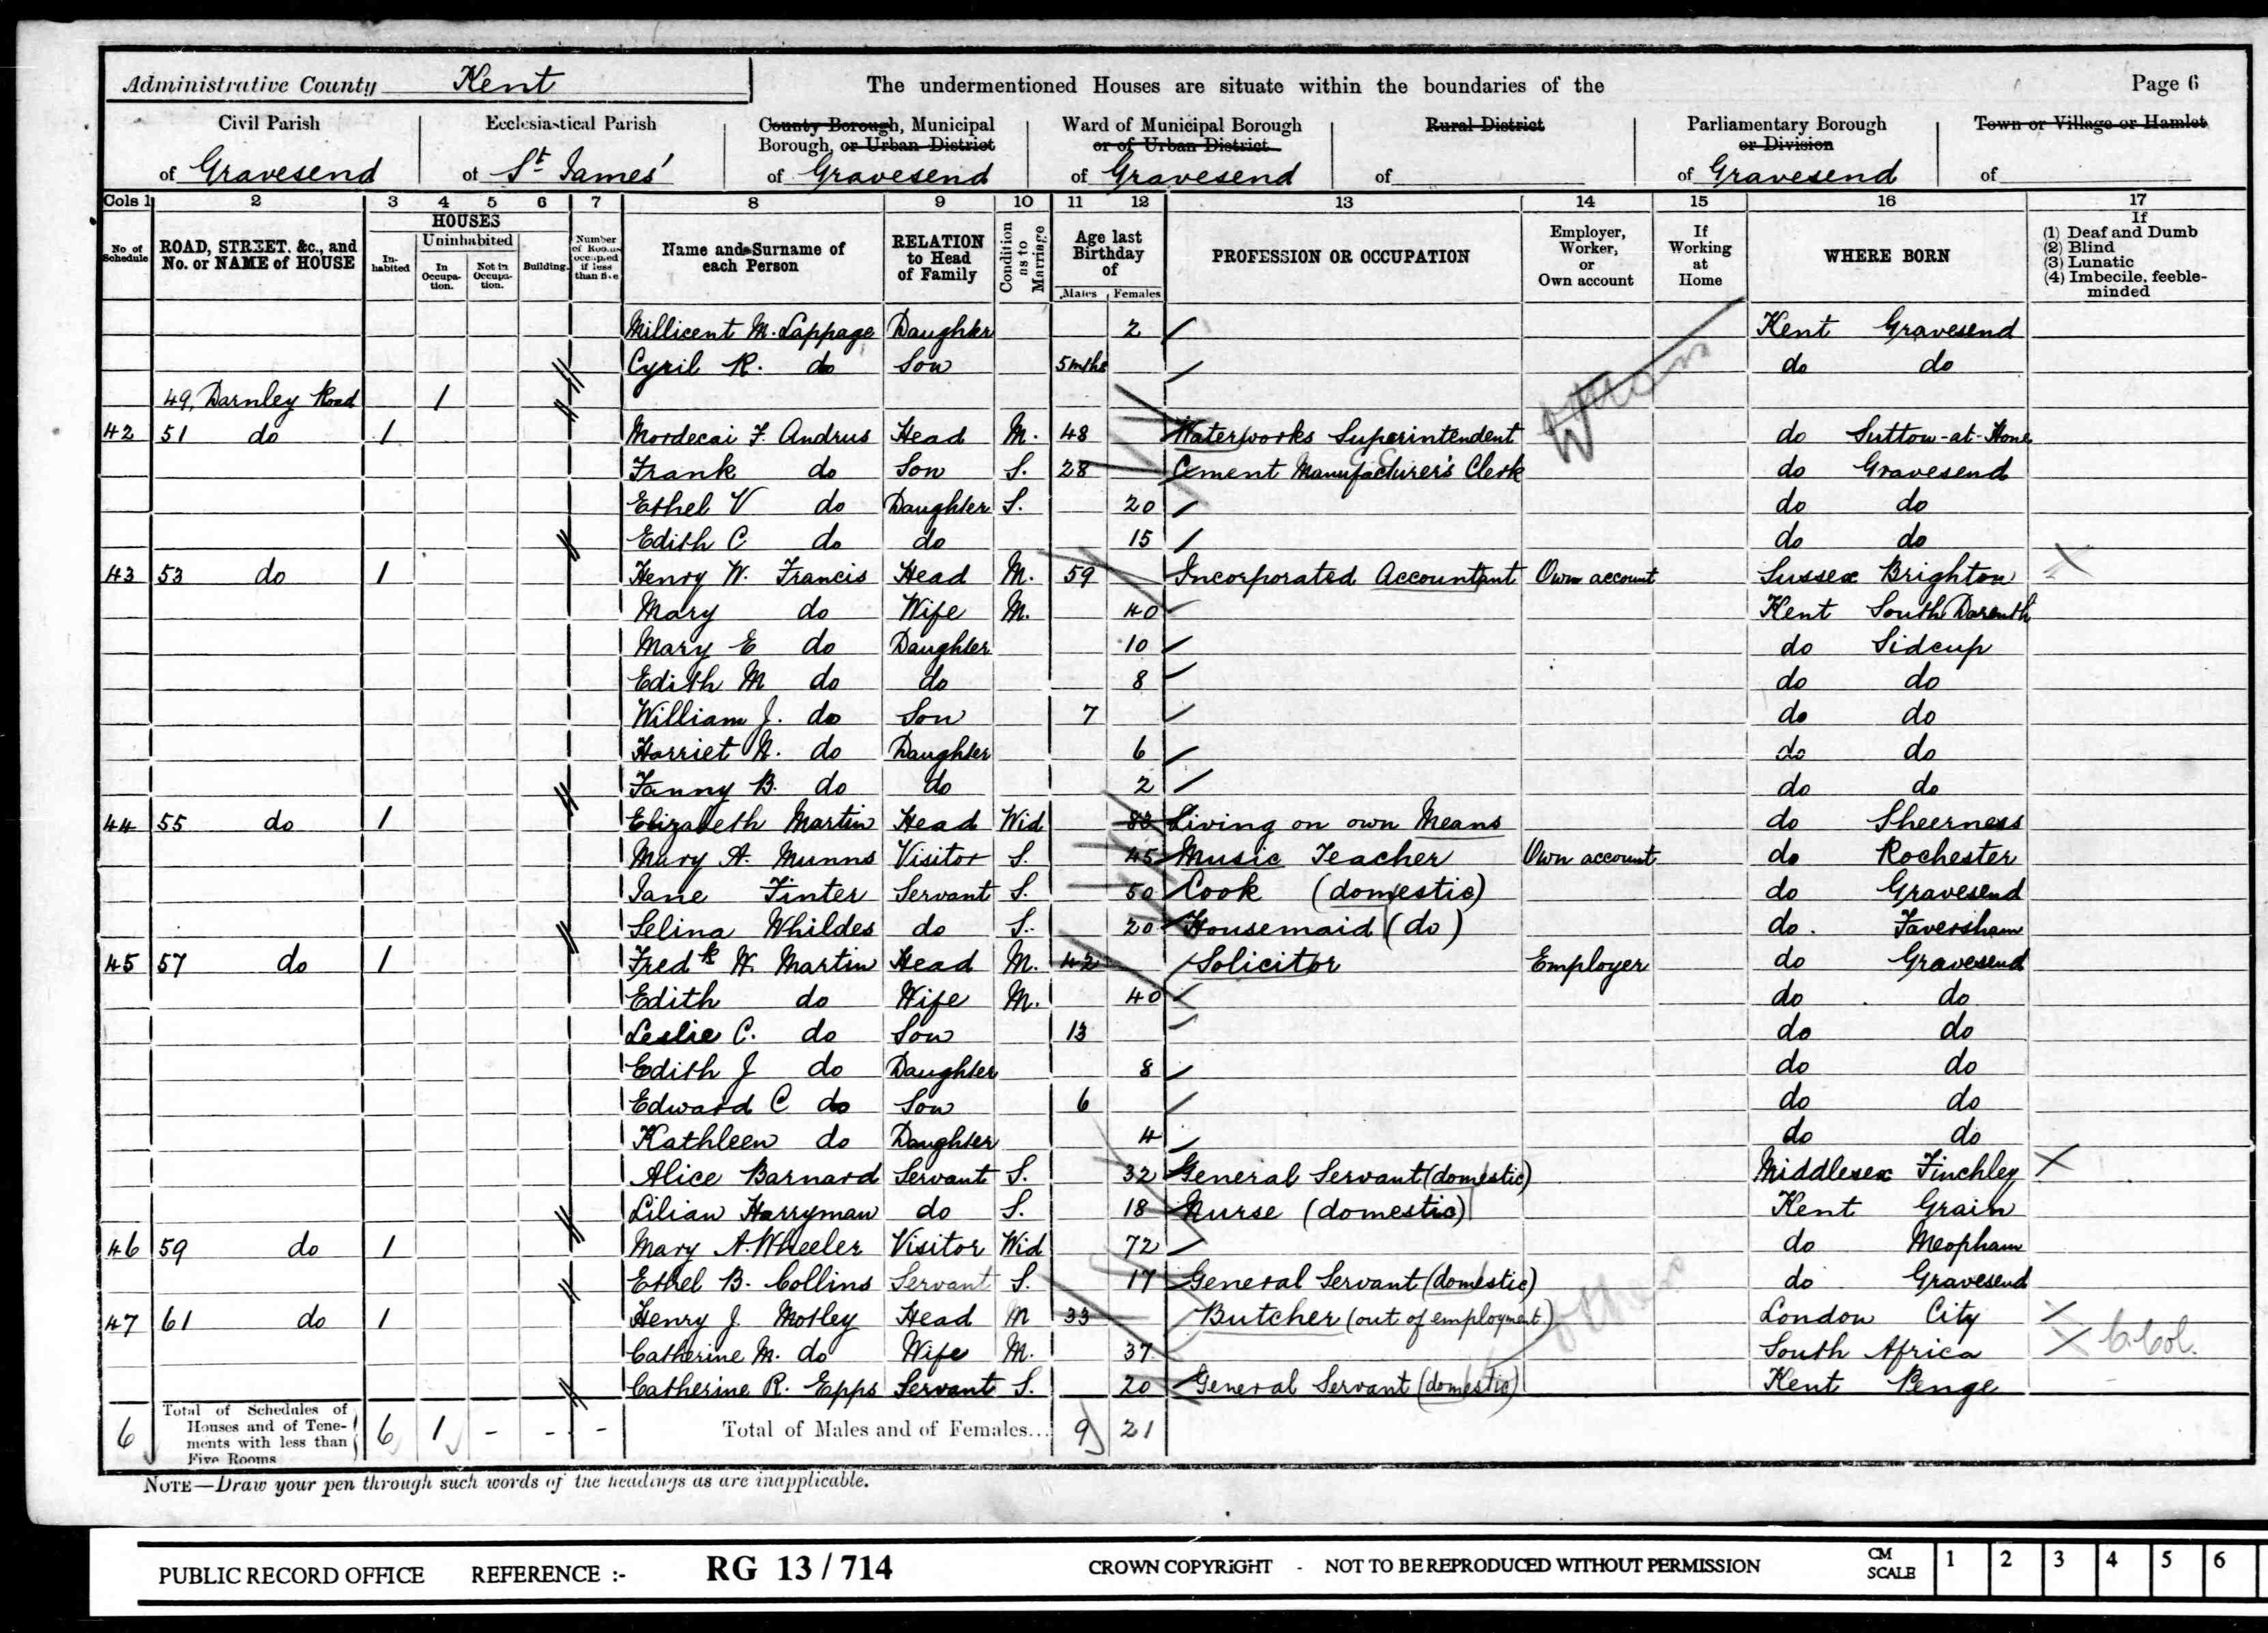 Administrative County Kent The undermentioned Houses are situate within the boundaries of the Page 6
Civil Parish Ecclesiastical Parish County Borough, Municipal Ward of Municipal Borough Rural District Parliamentary Borough Town or Village or Hamlet
Borough, or Urban District or of Urban District or Division
of Gravesend of St James' of Gravesend of Gravesend of of Gravesend of
Cols 1 2 3 4 5 6 7 8 9 10 11 12 13 14 15 16 17
No of Schedule ROAD, STREET, &c., and No. or NAME of HOUSE HOUSES In-habited Uninhabited In Occupa-tion. Not in Occupa-tion. Building. Number of Rooms occupied if less than five Name and Surname of each Person RELATION to Head of Family Condition as to Marriage Age last Birthday of Males Females PROFESSION OR OCCUPATION Employer, Worker, or Own account If Working at Home WHERE BORN If (1) Deaf and Dumb (2) Blind (3) Lunatic (4) Imbecile, feeble-minded
Millicent M. Lappage Daughter 2 Kent Gravesend
Cyril R. do Son 5 mths do do
49, Darnley Road 1
42 51 do 1 Mordecai F. Andrus Head M. 48 Waterworks Superintendent do Sutton-at-Hone
Frank do Son S. 28 Cement Manufacturer's Clerk do Gravesend
Ethel V do Daughter S. 20 do do
Edith C do do 15 do do
43 53 do 1 Henry W. Francis Head M. 59 Incorporated Accountant Own account Sussex Brighton
Mary do Wife M. 40 Kent South Darenth
Mary E do Daughter 10 do Sidcup
Edith M do do 8 do do
William J. do Son 7 do do
Harriet N. do Daughter 6 do do
Fanny B. do do 2 do do
44 55 do 1 Elizabeth Martin Head Wid 83 Living on own Means do Sheerness
Mary A. Munns Visitor S. 45 Music Teacher Own account do Rochester
Jane Finter Servant S. 50 Cook (domestic) do Gravesend
Selina Whildes do S. 20 Housemaid (do) do. Faversham
45 57 do 1 Fredk W. Martin Head M. 42 Solicitor Employer do Gravesend
Edith do Wife M. 40 do do
Leslie C. do Son 13 do do
Edith J do Daughter 8 do do
Edward C do Son 6 do do
Kathleen do Daughter 4 do do
Alice Barnard Servant S. 32 General Servant (domestic) Middlesex Finchley
Lilian Harryman do S. 18 Nurse (domestic) Kent Grain
46 59 do 1 Mary A. Wheeler Visitor Wid 72 do Meopham
Ethel B. Collins Servant S. 17 General Servant (domestic) do Gravesend
47 61 do 1 Henry J. Motley Head M 33 Butcher (out of employment) London City
Catherine M. do Wife M. 37 South Africa C. Col.
Catherine R. Epps Servant S. 20 General Servant (domestic) Kent Penge
6 Total of Schedules of Houses and of Tene-ments with less than Five Rooms 6 1 - - - Total of Males and of Females... 9 21
NOTE—Draw your pen through such words of the headings as are inapplicable.
PUBLIC RECORD OFFICE REFERENCE :- RG 13 / 714 CROWN COPYRIGHT - NOT TO BE REPRODUCED WITHOUT PERMISSION CM SCALE 1 2 3 4 5 6